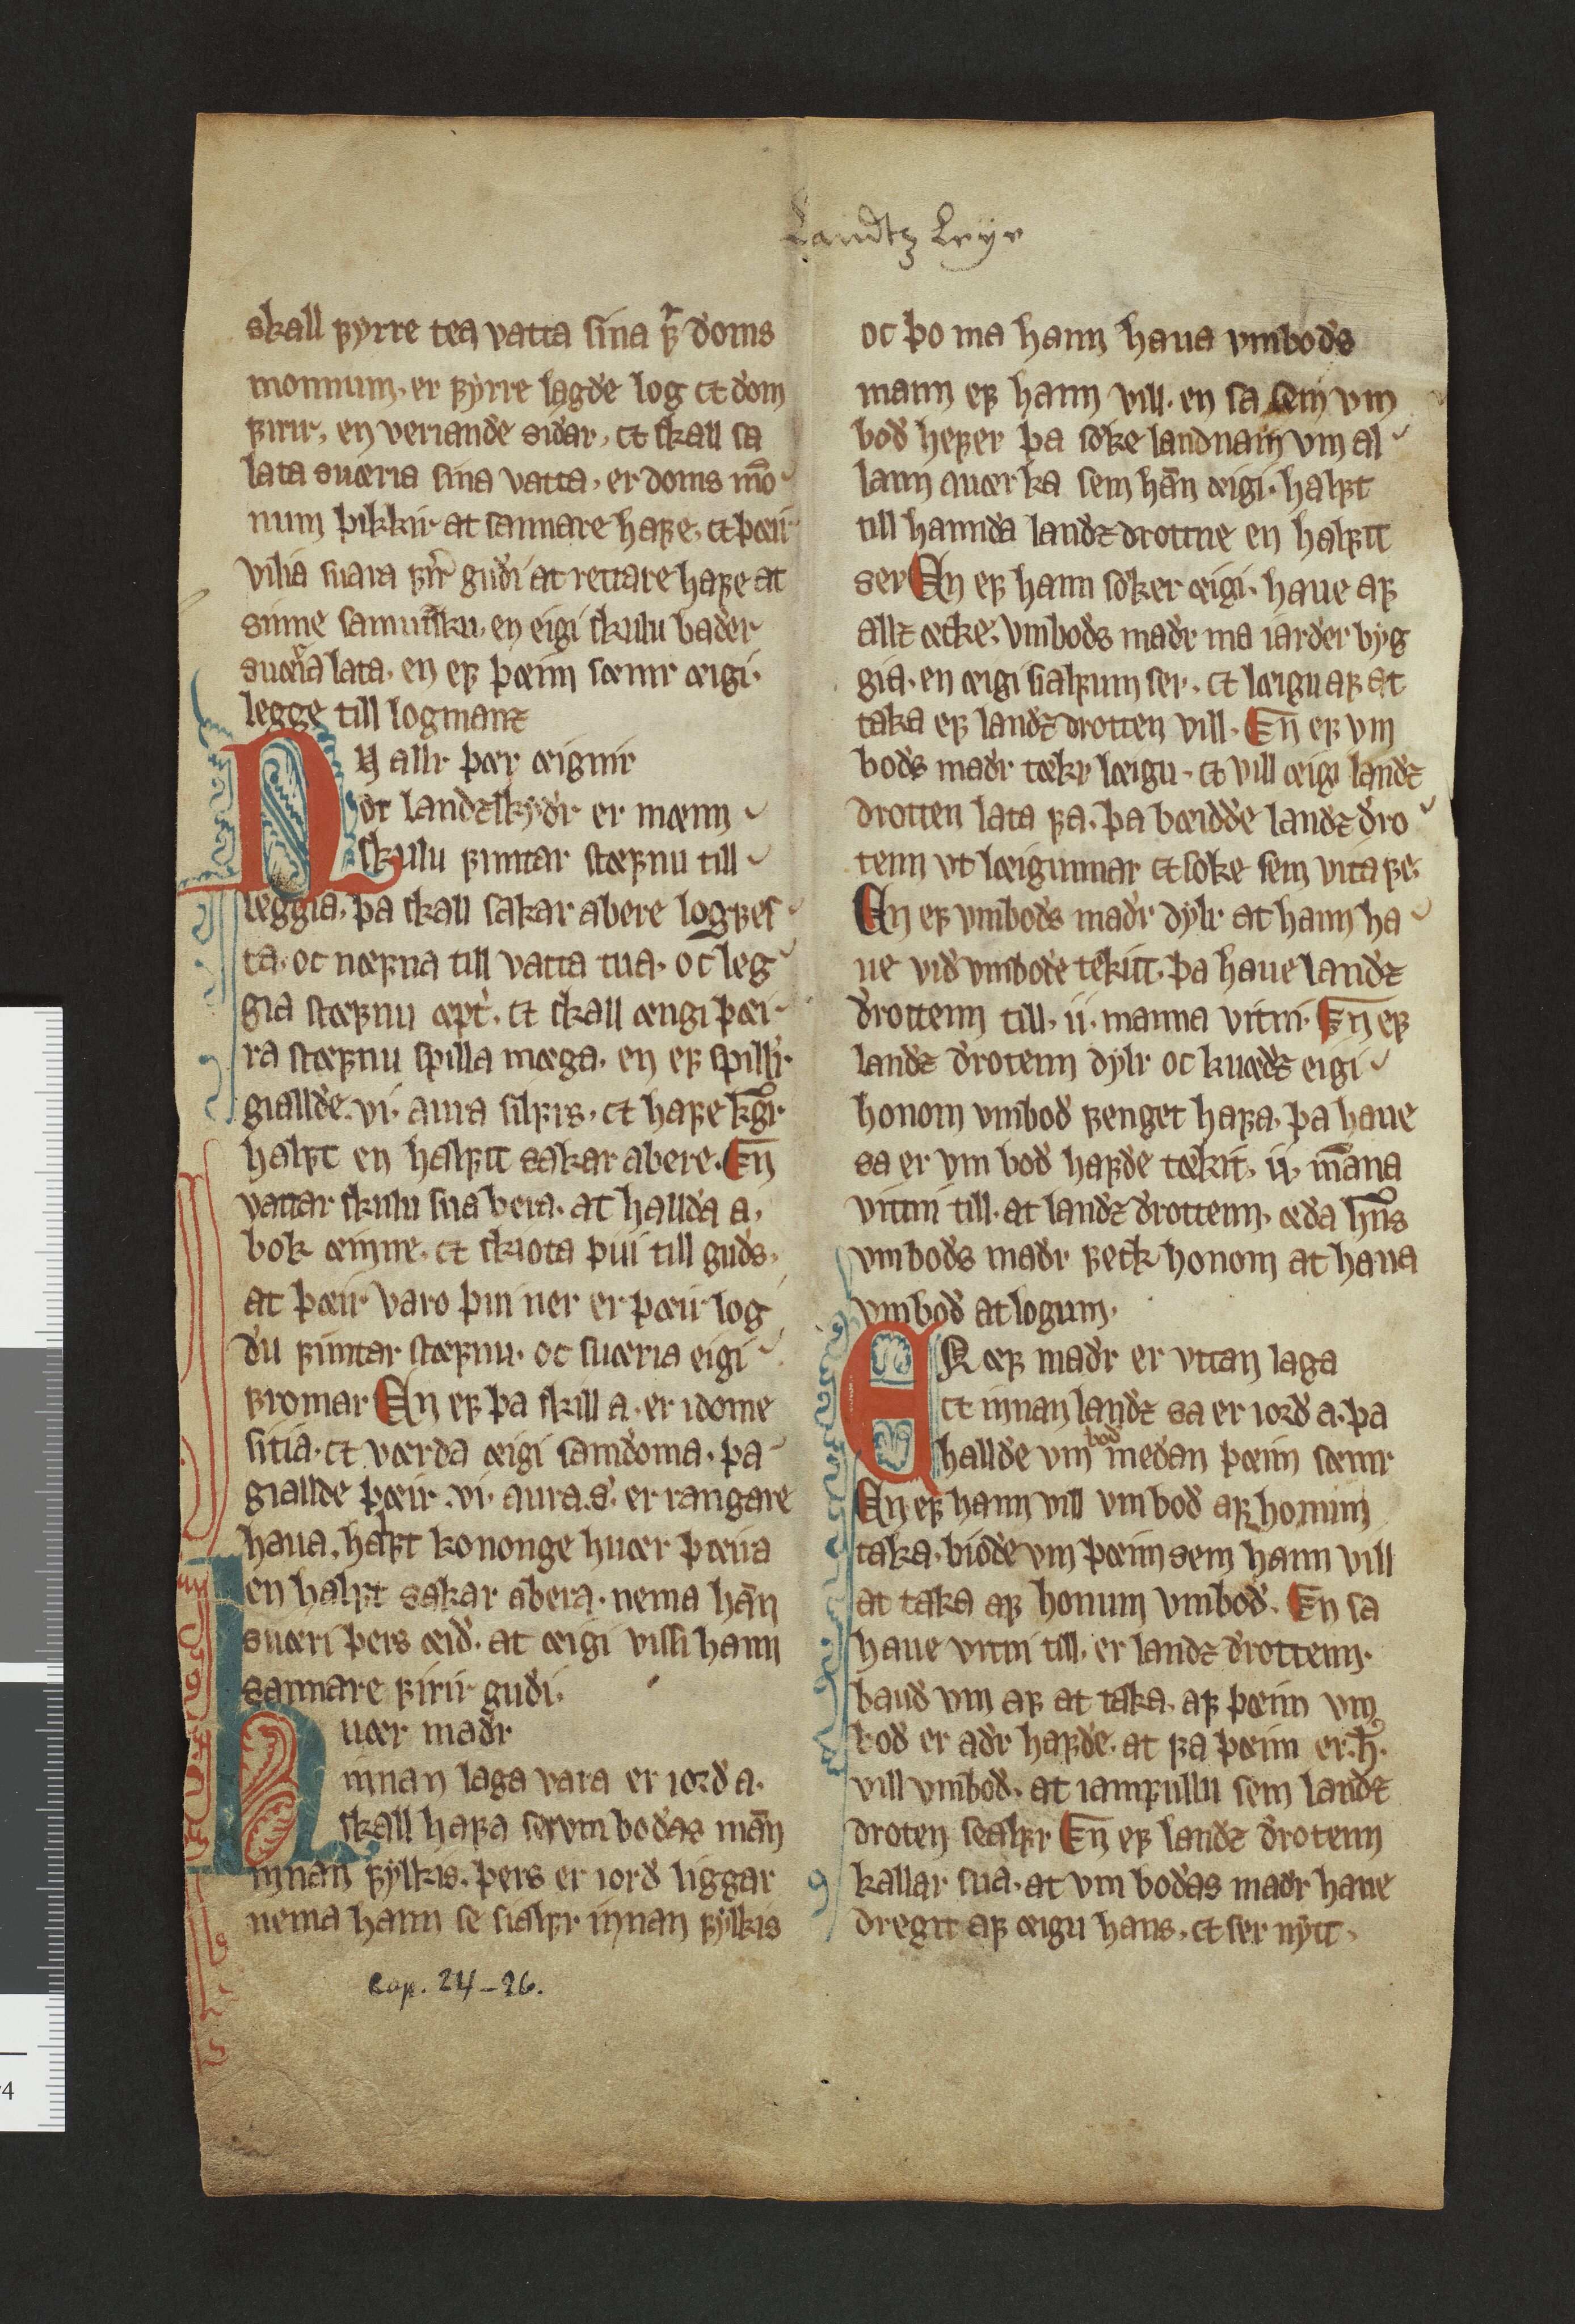 Landtz Leye
skall fyrre tea vatta sina fꝛ doms
monnum, er fyrre lagde log ⁊ dom
firir, en veriande sidar, ⁊ skall sa
lata suæria sina vatta, er doms mō
num þikkir at sannare hafe, ⁊ þæir
vilia suara firir gudi at rettare hafe at
sinne samuitsku, en eigi skulu bader
suæria lata, en ef þæim sæmr æigi.
legge till logmanz
NV allir þær æignir
oc landzskyldr er mænn
skulu fimtar stæfnu till
leggia, þa skall sakar abere logfes
ta. oc næfna till vatta tua. oc leg
gia stæfnu æpt͛. ⁊ skall ængi þæi
ra stæfnu spilla mæga. en ef spilli͛
giallde. vi. aura silfrs, ⁊ hafe kōgr
halft en halfit sakar abere. En̄
vattar skulu sua bera. at hallda a,
bok æinne. ⁊ skiota þui till guds,
at þæir varo þui ner er þæir log
du fimtar stæfnu. oc suæria eigi
fromar En ef þa skill a. er idome
sitia. ⁊ værda æigi samdoma. þa
giallde þæir .vi. aura .s. er rangare
haua, halft kononge huær þæira
en halft sakar abera. nema hān
suæri þers æid. at æigi vissi hann
sannare firir gudi.
huær madr
innan laga vara er iord a.
skall hafa ser vmbodas mān
innan fylkis. þers er iord liggar
nema hann se sialfr innan fylkis
Kap. 24-26.
oc þo ma hann haua vmbods
mann ef hann vill. en sa sem vm
bod hefer þa søke landnam vm al
lann auærka sem hān æigi. halft
till hannda landz drottne en halfit
ser En ef hann søker æigi. haue af
allz æcke. vmbods madr ma iarder byg
gia. en æigi sialfum ser. ⁊ læigu af at
taka ef landz drotten vill. En̄ ef vm
bods madr tækr læigu. ⁊ vill æigi landz
drotten lata fa. þa bæidde landz dro
tenn vt læigunnar ⁊ søke sem vita fe.
En ef vmbods madr dylr at hann ha
ue vid vmbode tekitt. þa haue landz
drottenn till. ii. manna vitni. En̄ ef
landz drotenn dylr oc kuædz eigi
honom vmbod fenget hafa. þa haue
sa er vm bod hafde tækit. ii. m̄ana
vittni till. at landz drottenn. æda hn̄s
vmbods madr feck honom at haua
vmbod at logum.
EN æf madr er vttan laga
⁊ innan landz sa er iord a. þa
hallde vm bod medan þæim sæmr
En ef hann vill vmbod af honum
taka. biode vm þæim sem hann vill
at taka af honum vmbod. En sa
haue vitni till. er landz drottenn.
baud vm af at taka. af þæim vm
bod er adr hafde. at fa þæim er. h̄.
vill vmbod. at iamfullu sem landz
droten sealfr En̄ ef landz drotenn
kallar sua. at vm bodas madr haue
dregit af æigu hans. ⁊ ser nytt.